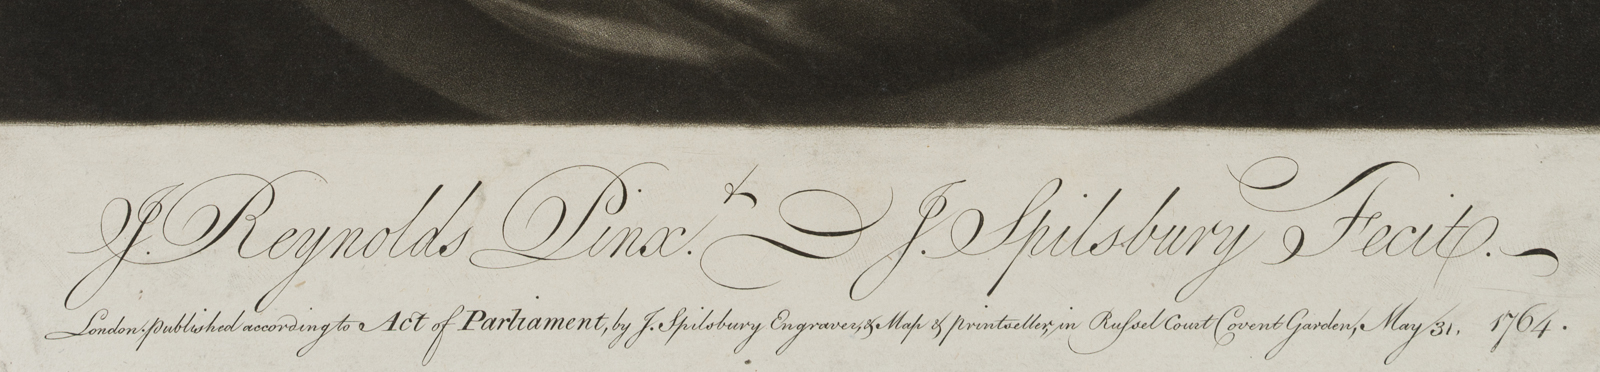 J. Reynolds Pinx.t J. Spilsbury Fecit.
London, published according to Act of Parliament, by J. Spilsbury Engraver, & Map & printseller, in Russel Court Covent Garden, May 31, 1764.